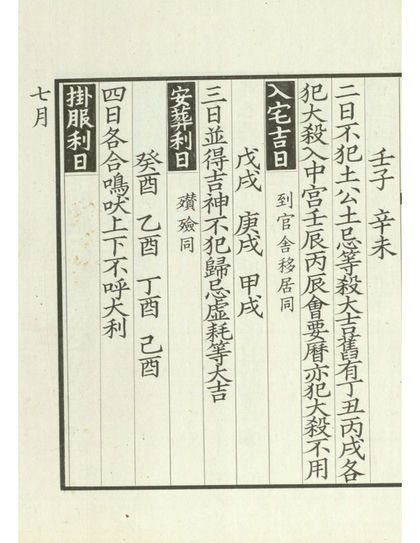 壬子 辛未
二日不犯土公土忌等殺大吉舊有丁丑丙戌各
犯大殺入中宮壬辰丙辰會要曆亦犯大殺不用
入宅吉日 到官舍移居同
戊戌 庚戌 甲戌
三日並得吉神不犯歸忌虛耗等大吉
安葬利日 殯殮同
癸酉 乙酉 丁酉 己酉
四日各合鳴吠上下不呼大利
掛服利日
七月